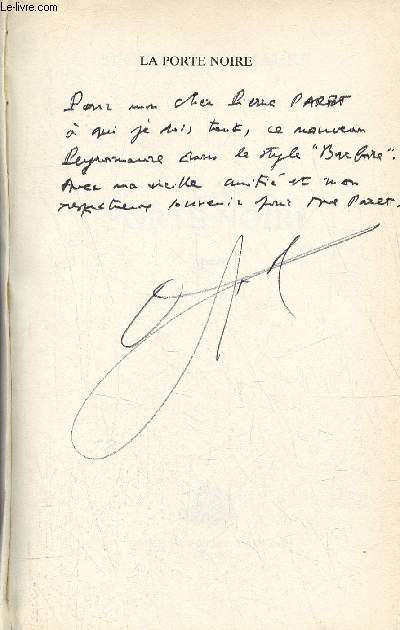 Le-livre.com
LA PORTE NOIRE
Pour mon cher Pierre PARET
à qui je dois tant, ce nouveau
Peyramaure dans le style "Barbare".
Avec ma vieille amitié et mon
respectueux souvenir pour Mme Paret.